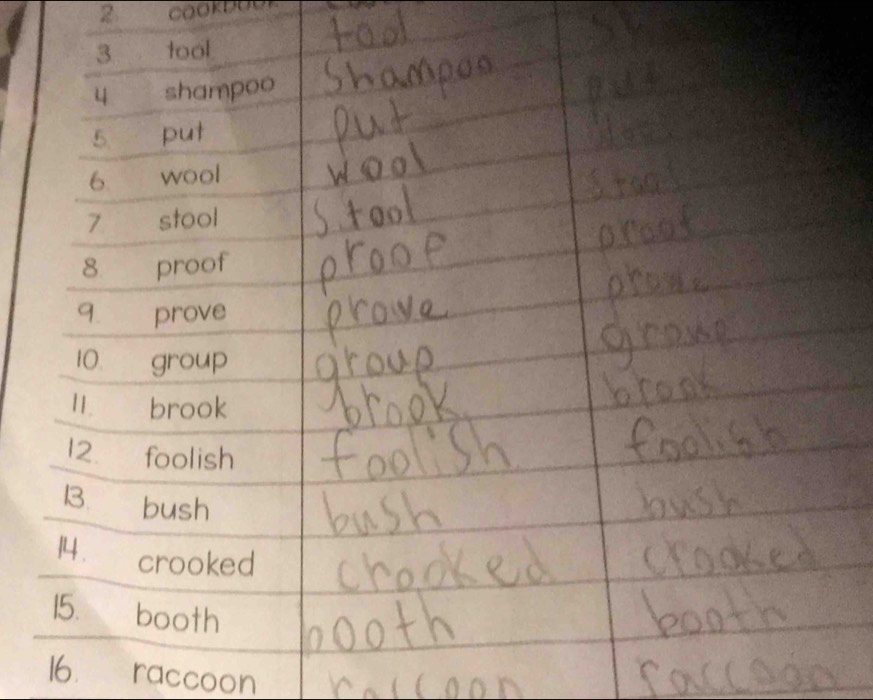 2. cookbook
3 tool tool
4 shampoo Shampoo
5 put put put
6. wool wool wool
7 stool Stool Stool
8 proof proof proof
9. prove prove prove
10. group group group
11. brook brook brook
12. foolish foolish foolish
13. bush bush bush
14. crooked crooked crooked
15. booth booth booth
16. raccoon raccoon raccoon